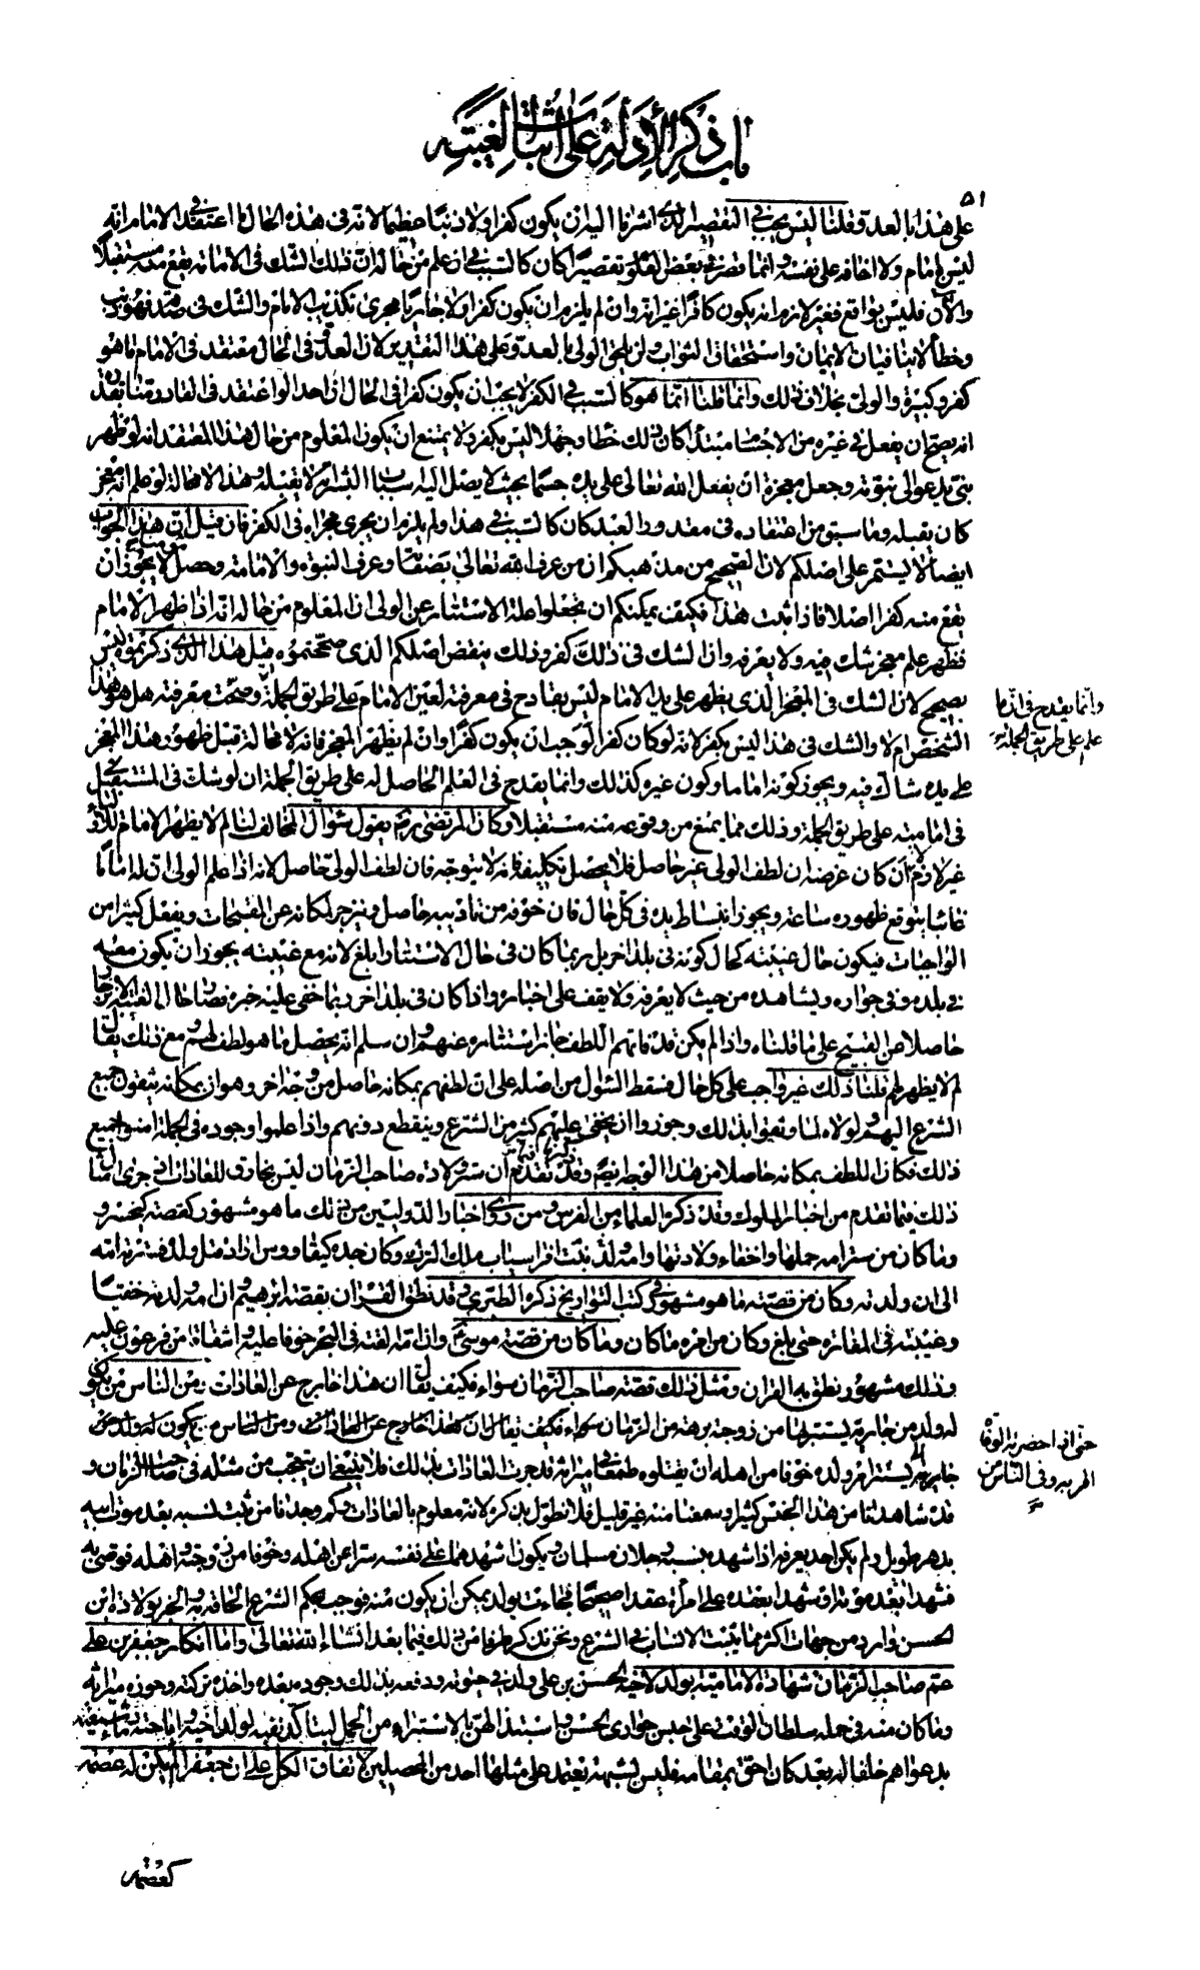 باب ذكر الأدلة على اثبات الغيبة
٥١
على هذا بالعدو قلنا ليس يجب في التقصير الذي اشرنا اليه ان يكون كفرا ولا ذنبا عظيما لانه في هذه الحال ما اعتقد في الامام انه
ليس بامام ولا اخافه على نفسه وانما قصر في بعض العلوم تقصيرا كان كالسبب في ان علم من حاله ان ذلك الشك في الامامة يقع منه مستقبلا
والآن فليس بواقع فغير لازم ان يكون كافرا غير انه وان لم يلزم ان يكون كفرا ولا جاريا مجرى تكذيب الامام والشك في صدقه فهو ذنب
وخطأ لا ينافيان الايمان واستحقاق الثواب ولن يلحق الولي بالعدو على هذا التقدير لان العدو في الحال معتقد في الامام ما هو
كفر وكبيرة والولي بخلاف ذلك وانما قلنا انما هو كالسبب في الكفر لا يجب ان يكون كفرا في الحال ان احدا لو اعتقد في القادر منا بقدرة
انه يصح ان يفعل في غيره من الاجسام مبتدأ كان ذلك خطأ وجهلا ليس بكفر ولا يمتنع ان يكون المعلوم من حال هذا المعتقد انه لو ظهر
نبي يدعو الى نبوته وجعل معجزه ان يفعل الله تعالى على يده جسما بحيث لا يصل اليه اسباب البشر انه لا يقبله وهذا لا محالة لو علم انه معجز
كان يقبله وما سبق من اعتقاده في مقدور العبد كان كالسبب في هذا ولم يلزم ان يجرى مجراه في الكفر فان قيل ان هذا الجواب
ايضا لا يستمر على اصلكم لان الصحيح من مذهبكم ان من عرف الله تعالى بصفاته وعرف النبوة والامامة وحصل مؤمنا لا يجوز ان
يقع منه كفرا اصلا فاذا ثبت هذا فكيف يمكنكم ان تجعلوا علة الاستتار عن الولي ان المعلوم من حاله انه اذا ظهر الامام
فظهر علم معجز شك فيه ولا يعرفه وان الشك في ذلك كفر وذلك ينقض اصلكم الذي صححتموه قيل هذا الذي ذكرتموه ليس
بصحيح لان الشك في المعجز الذي يظهر على يد الامام ليس بقادح في معرفته لعين الامام على طريق الجملة وصحت معرفته هل هو هذا
وانما يقدح في ان ما
علم على طريق الجملة
الشخص ام لا والشك في هذا ليس بكفر لانه لو كان كفرا لوجب ان يكون كفرا وان لم يظهر المعجز فانه لا محالة قبل ظهور هذا المعجز
على يده شاك فيه ويجوز كونه اماما وكون غيره كذلك وانما يقدح في العلم الحاصل له على طريق الجملة ان لو شك في المستقبل
في امامته على طريق الجملة وذلك مما يمنع من وقوعه منه مستقبلا وكان المرتضى ره يقول سؤال المخالف لنا لم لا يظهر الامام للأولياء
غير لازم لانه ان كان غرضه ان لطف الولي غير حاصل فلا يحصل تكليفه فانه لا يتوجه فان لطف الولي حاصل لانه اذا علم الولي ان له اماما
غائبا يتوقع ظهوره ساعة ويجوز انبساط يده في كل حال فان خوفه من تاديبه حاصل وينزجر لمكانه عن المقبحات ويفعل كثيرا من
الواجبات فيكون حال غيبته كحال كونه في بلد آخر بل ربما كان في حال الاستتار ابلغ لانه مع غيبته يجوز ان يكون معه
في بلده وفي جواره ويشاهده من حيث لا يعرفه ولا يقف على اخباره واذا كان في بلد آخر ربما خفى عليه خبره فصار حال الغيبة الانزجار
حاصلا عن القبيح على ما قلناه واذا لم يكن قد فاتهم اللطف جاز استتاره عنهم وان سلم انه يحصل ما هو لطف لهم ومع ذلك يقال
لم لا يظهر لهم قلنا ذلك غير واجب على كل حال فسقط السؤال من اصله على ان لطفهم بمكانه حاصل من وجه آخر وهو ان بمكانه يثقون جميع
الشرع اليهم ولولاه لما وثقوا بذلك وجوزوا ان يخفى عليهم كثير من الشرع وينقطع دونهم واذا علموا وجوده في الجملة امنوا جميع
ذلك فكان اللطف بمكانه حاصلا من هذا الوجه ايضا وقد تقدم ان ستر ولادة صاحب الزمان ليس بخارق للعادات اذ جرى امثال
ذلك فيما تقدم من اخبار الملوك وقد ذكره العلماء من الفرس ومن روى اخبار الدولتين من ذلك ما هو مشهور كقصة كيخسرو
وما كان من ستر امه حملها واخفاء ولادتها وامه ولد بنت افراسياب ملك الترك وكان جده كيقاووس اراد قتل ولده فسترته امه
الى ان ولدته وكان من قصته ما هو مشهور في كتب التواريخ ذكره الطبري وقد نطق القرآن بقصة ابرهيم ان امه ولدته خفيا
وغيبته في المغارة حتى بلغ وكان من امره ما كان وما كان من قصة موسى ع وان امه القته في البحر خوفا عليه واشفاقا من فرعون عليه
وذلك مشهور نطق به القرآن ومثل ذلك قصة صاحب الزمان سواء فكيف يقال ان هذا خارج عن العادات ومن الناس من يكون
له ولد من جارية يستترها من زوجته برهة من الزمان
حتى اذا حضرته الوفاة
اقر به وفي الناس من
جارية يستتر امر ولده خوفا من اهله ان يقتلوه طمعا في ميراثه قد جرت العادات بذلك فلا ينبغي ان يتعجب من مثله في صاحب الزمان و
قد شاهدنا من هذا الجنس كثيرا وسمعنا منه غير قليل فلا نطول بذكره لانه معلوم بالعادات وكم وجدنا من ثبت نسبه بعد موت ابيه
بدهر طويل ولم يكن احد يعرفه اذا شهد بنسبه رجلان مسلمان ويكون اشهدهما على نفسه سترا عن اهله وخوفا من زوجته واهله فوصى به
فشهدا بعد موته او شهدا بعقده على امرأة عقدا صحيحا فجاءت بولد يمكن ان يكون منه فوجب بحكم الشرع الحاقه به والخبر بولادة ابن
الحسن وارد من جهات اكثر مما يثبت الانساب في الشرع ونحن نذكر طرفا من ذلك فيما بعد انشاء الله تعالى واما انكار جعفر بن علي
عم صاحب الزمان شهادة الامامية بولد لاخيه الحسن بن علي ولد في حيوته ودفعه بذلك وجوده بعده واخذه تركته وحوزه ميراثه
وما كان منه في حمله سلطان الوقت على حبس جوارى الحسن واستبذالهن بالاستبراء من الحمل ليتاكد نفيه لولد اخيه واباحته دماء شيعته
بدعواهم خلفا له بعده كان احق بمقامه فليس لشبهة يعتمد على مثلها احد من المحصلين لاتفاق الكل على ان جعفرا لم يكن له عصمة
كعصمة